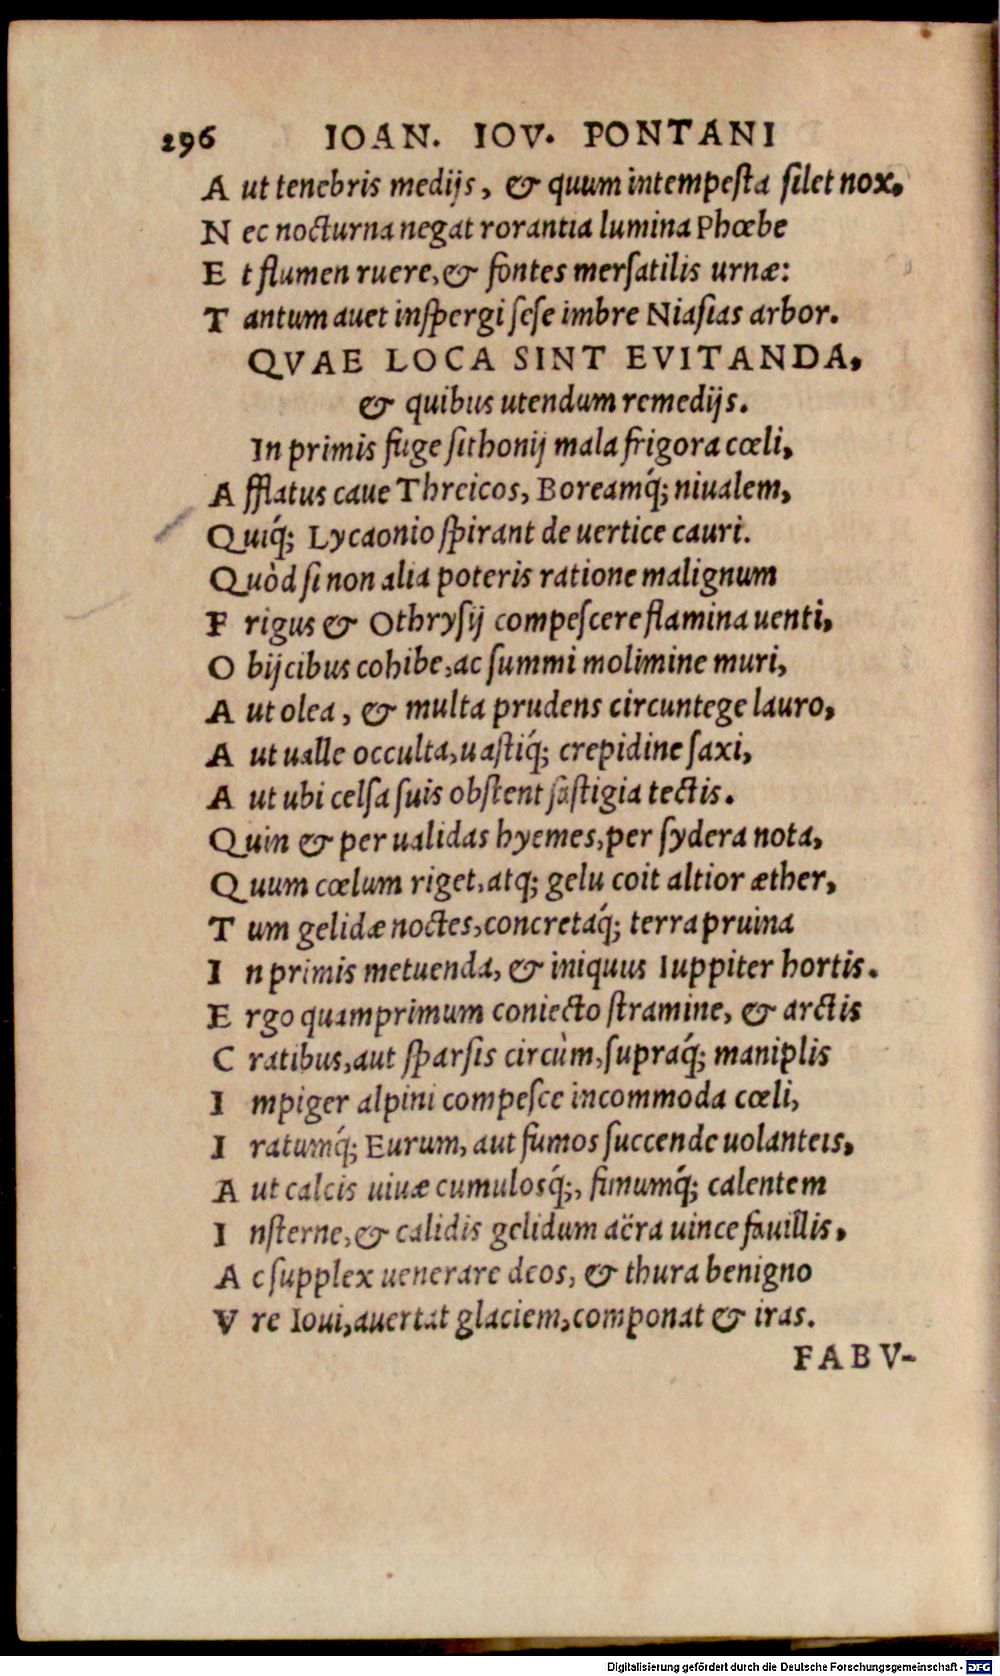 296 IOAN. IOV. PONTANI
A ut tenebris medijs, & quum intempesta silet nox,
N ec nocturna negat rorantia lumina Phœbe
E t flumen ruere, & fontes mersatilis urnæ:
T antum auet inspergi sese imbre Niasias arbor.
QVAE LOCA SINT EVITANDA,
& quibus utendum remedijs.
In primis fuge sithonij mala frigora cœli,
A fflatus caue Threicos, Boreamq́; niualem,
Q uiq́; Lycaonio spirant de uertice cauri.
Q uòd si non alia poteris ratione malignum
F rigus & Othrysij compescere flamina uenti,
O bijcibus cohibe, ac summi molimine muri,
A ut olea, & multa prudens circuntege lauro,
A ut ualle occulta, uastiq́; crepidine saxi,
A ut ubi celsa suis obstent fastigia tectis.
Q uin & per ualidas hyemes, per sydera nota,
Q uum cœlum riget, atq; gelu coit altior æther,
T um gelidæ noctes, concretaq́; terra pruina
I n primis metuenda, & iniquus Iuppiter hortis.
E rgo quamprimum coniecto stramine, & arctis
C ratibus, aut sparsis circùm, supraq́; maniplis
I mpiger alpini compesce incommoda cœli,
I ratumq́; Eurum, aut fumos succende uolanteis,
A ut calcis uiuæ cumulosq́;, fimumq́; calentem
I nsterne, & calidis gelidum aëra uince fauillis,
A c supplex uenerare deos, & thura benigno
V re Ioui, auertat glaciem, componat & iras.
FABV-
Digitalisierung gefördert durch die Deutsche Forschungsgemeinschaft - DFG